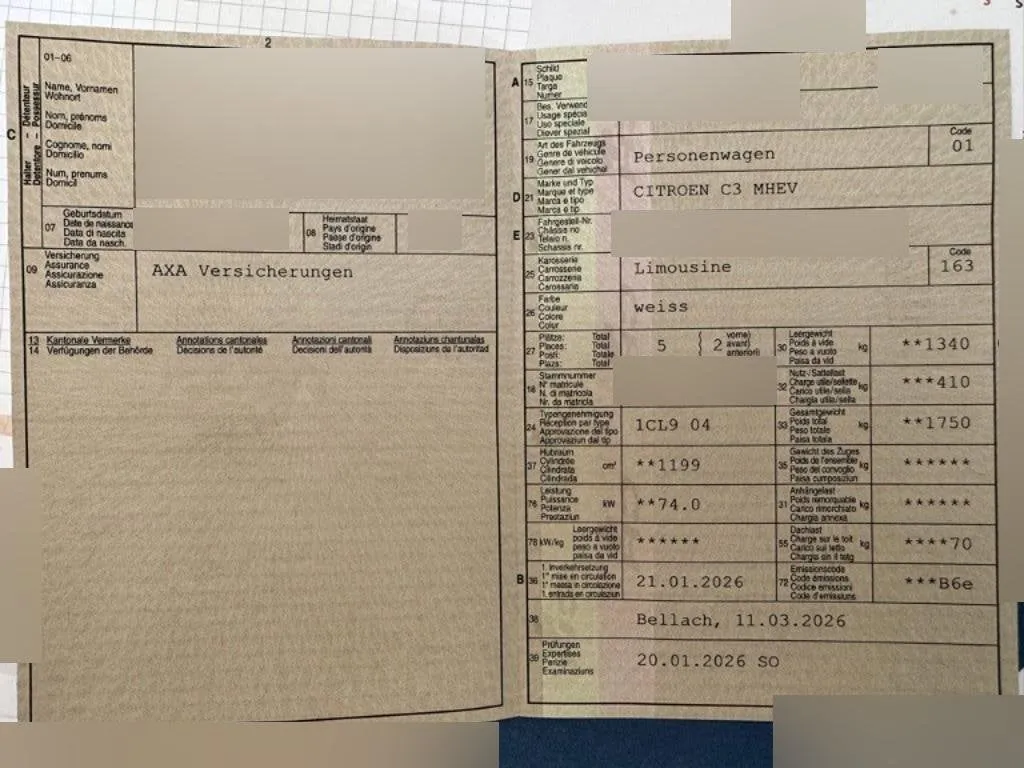 2
01-06
C
Halter – Détenteur
Detentore – Possessur
Name, Vornamen
Wohnort
Nom, prénoms
Domicile
Cognome, nomi
Domicilio
Num, prenums
Domicil
07
Geburtsdatum
Date de naissance
Data di nascita
Data da nasch.
08
Heimatstaat
Pays d'origine
Paese d'origine
Stadi d'origin
09
Versicherung
Assurance
Assicurazione
Assicuranza
AXA Versicherungen
13 Kantonale Vermerke Annotations cantonales Annotazioni cantonali Annotaziuns chantunalas
14 Verfügungen der Behörde Décisions de l'autorité Decisioni dell'autorità Disposiziuns da l'autoritad
A 15
Schild
Plaque
Targa
Numer
17
Bes. Verwend
Usage spécia
Uso speciale
Diever spezial
19
Art des Fahrzeugs
Genre de véhicule
Genere di veicolo
Gener dal vehichel
Personenwagen
Code
01
D 21
Marke und Typ
Marque et type
Marca e tipo
Marca e tip
CITROEN C3 MHEV
E 23
Fahrgestell-Nr.
Châssis no
Telaio n.
Schassis nr.
25
Karosserie
Carrosserie
Carrozzeria
Carossaria
Limousine
Code
163
26
Farbe
Couleur
Colore
Colur
weiss
27
Plätze: Total
Places: Total
Posti: Totale
Plazs: Total
5 ( 2 vorne)
avant)
anteriori)
30
Leergewicht
Poids à vide
Peso a vuoto
Paisa da vid
kg
**1340
18
Stammnummer
N° matricule
N. di matricola
Nr. da matricla
32
Nutz-/Sattellast
Charge utile/sellette
Carico utile/sella
Chargia utila/sella
kg
***410
24
Typengenehmigung
Réception par type
Approvazione del tipo
Approvaziun dal tip
1CL9 04
33
Gesamtgewicht
Poids total
Peso totale
Paisa totala
kg
**1750
37
Hubraum
Cylindrée
Cilindrata
Cilindrada
cm³
**1199
35
Gewicht des Zuges
Poids de l'ensemble
Peso del convoglio
Paisa cumposiziun
kg
******
76
Leistung
Puissance
Potenza
Prestaziun
kW
**74.0
31
Anhängelast
Poids remorquable
Carico rimorchiato
Chargia annexa
kg
******
78 kW/kg
Leergewicht
poids à vide
peso a vuoto
paisa da vid
******
55
Dachlast
Charge sur le toit
Carico sul tetto
Chargia sin il tetg
kg
****70
B 36
1. Inverkehrsetzung
1re mise en circulation
1a messa in circolazione
1. entrada en circulaziun
21.01.2026
72
Emissionscode
Code émissions
Codice emissioni
Code d'emissiuns
***B6e
38
Bellach, 11.03.2026
39
Prüfungen
Expertises
Perizie
Examinaziuns
20.01.2026 SO